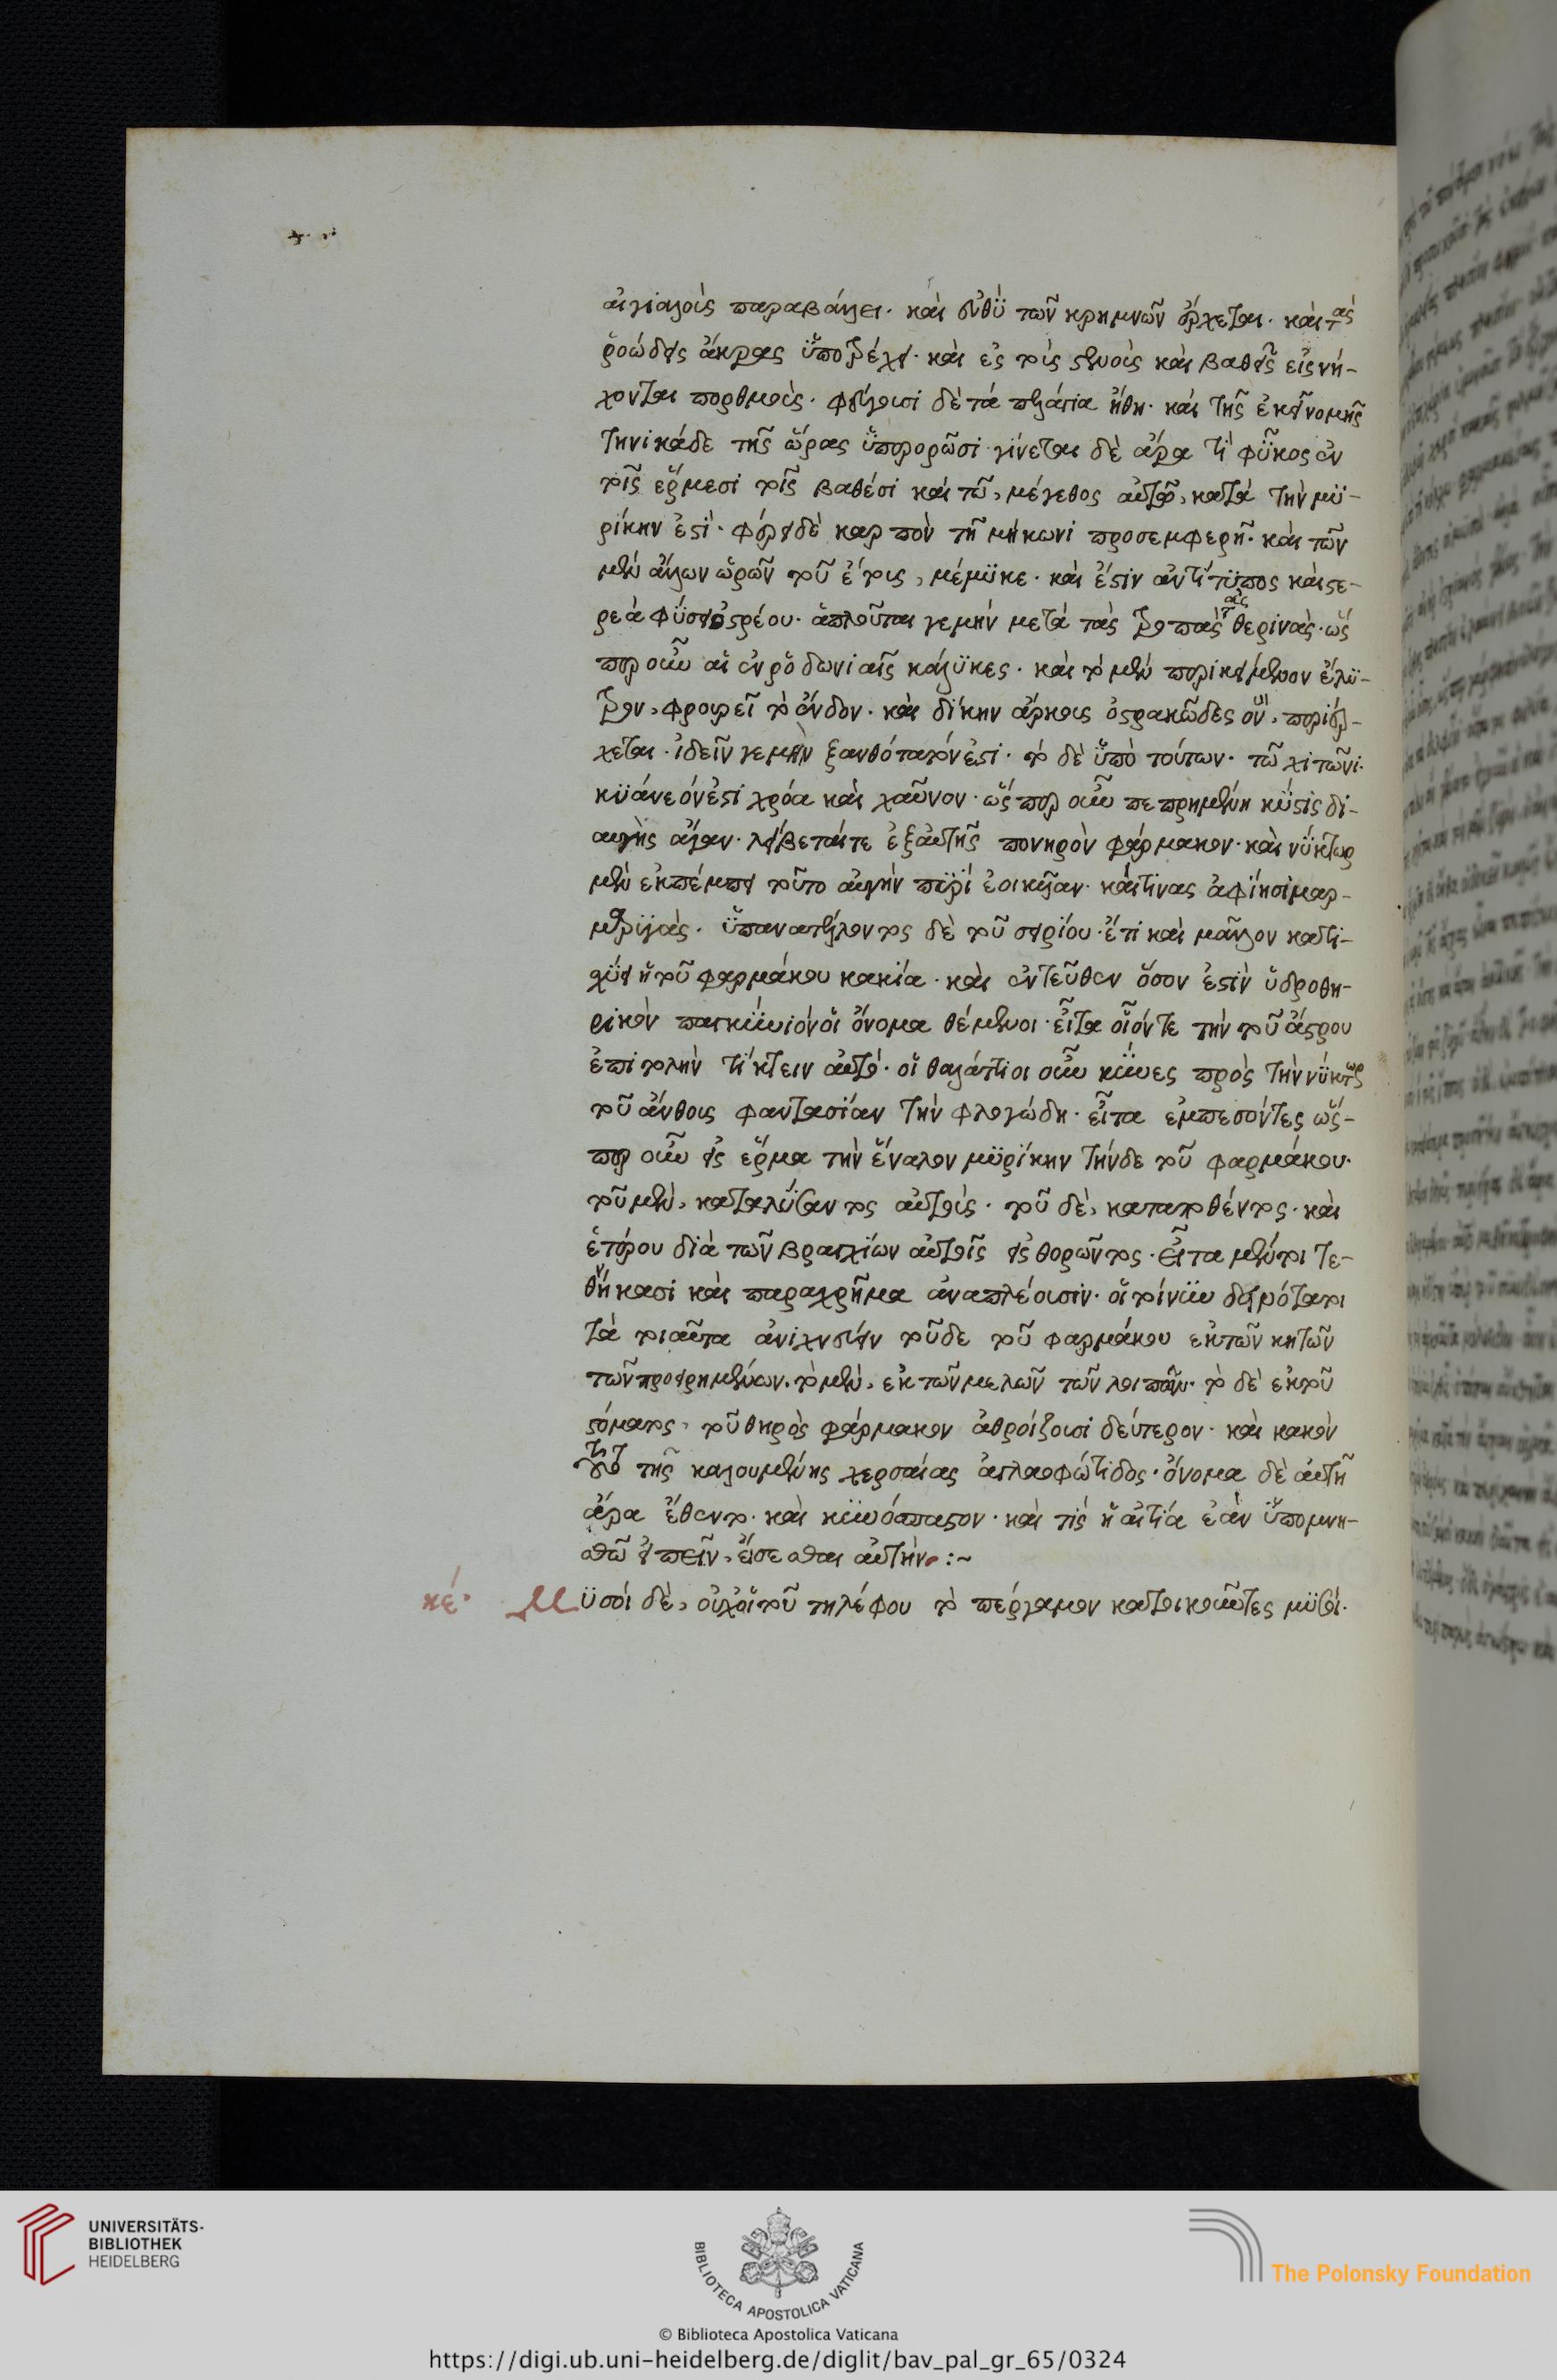 αἰγιαλοῖς παραβάλλει· καὶ εὐθὺ τῶν κρημνῶν ἔρχεται· καὶ τὰς
ῥοώδεις ἄκρας ὑποτρέχει· καὶ ἐς τοὺς στενοὺς καὶ βαθεῖς εἰσνή-
χονται πορθμούς· φεύγουσι δὲ τὰ πελάγια ἤθη· καὶ τῆς ἐκεῖ νομῆς
τηνικάδε τῆς ὥρας ὑπερορῶσι γίνεται δὲ ἄρα τὶ φῦκος ἐν
τοῖς ἕρμεσι τοῖς βαθέσι καὶ τῶ, μέγεθος αὐτοῦ, κατὰ τὴν μυ-
ρίκην ἐστί· φέρει δὲ καρπὸν τῆ μήκωνι προσεμφερῆ· καὶ τῶν
μὲν ἄλλων ὡρῶν τοῦ ἔτους, μέμυκε· καὶ ἔστιν ἀντίτυπος καὶ στε-
ρεὰ φύσει ὀστρέου· ἁπλοῦται γεμὴν μετὰ τὰς τροπὰς τὰς θερινὰς· ὥς
περ οὖν αἱ ἐν ῥοδωνιαῖς κάλυκες· καὶ τὸ μὲν περικείμενον ἔλυ-
τρον, φρουρεῖ τὸ ἔνδον· καὶ δίκην ἕρκους ὀστρακῶδες ὂν, περιέρ-
χεται· ἰδεῖν γεμὴν ξανθότατόν ἐστι· τὸ δὲ ὑπὸ τούτων· τῶ χιτῶνι·
κυάνεόν ἐστι χρόα καὶ χαῦνον· ὥσπερ οὖν πεπρημένη κύστις δι-
αυγὴς ἄγαν· λείβεταί τε ἐξ αὐτῆς πονηρὸν φάρμακον· καὶ νύκτωρ
μὲν ἐκπέμπει τοῦτο αὐγὴν πυρὶ ἐοικυῖαν· καί τινας ἀφίησι μαρ-
μαρυγάς· ὑπανατέλλοντος δὲ τοῦ σειρίου· ἔτι καὶ μᾶλλον κατι-
σχύει ἡ τοῦ φαρμάκου κακία· καὶ ἐντεῦθεν ὅσον ἐστὶν ὑδροθη-
ρικὸν παγκύνιόν οἱ ὄνομα θέμενοι· εἶτα οἴονται τὴν τοῦ ἄστρου
ἐπιτολὴν τίκτειν αὐτό· οἱ θαλάττιοι οὖν κύνες πρὸς τὴν νύκτωρ
τοῦ ἄνθους φαντασίαν τὴν φλογώδη· εἶτα ἐμπεσόντες ὥσ-
περ οὖν εἰς ἕρμα τὴν ἔναλον μυρίκην τήνδε τοῦ φαρμάκου·
τοῦ μὲν, καταλύσαντος αὐτούς· τοῦ δὲ, καταποθέντος· καὶ
ἑτέρου διὰ τῶν βραγχίων αὐτοῖς εἰσθορῶντος· εἶτα μέντοι τε-
θνήκασι καὶ παραχρῆμα ἀναπλέουσιν· οἱ τοίνυν δεινότατοι
τὰ τοιαῦτα ἀνιχνεύειν τοῦδε τοῦ φαρμάκου ἐκ τῶν κητῶν
τῶν προειρημένων· τὸ μὲν, ἐκ τῶν μελῶν τῶν λοιπῶν· τὸ δὲ ἐκ τοῦ
στόματος, τοῦ θηρὸς φάρμακον ἀθροίζουσι δεύτερον· καὶ κακὸν
τοῦτο τῆς καλουμένης χερσαίας ἀγλαοφώτιδος· ὄνομα δὲ αὐτῆ
ἄρα ἔθεντο· καὶ κυνόσπαστον· καὶ τίς ἡ αἰτία ἐὰν ὑπομνη-
σθῶ εἰπεῖν, εἴσεσθαι αὐτήν· :~
κέ· Μυσοὶ δὲ, οὐχ οἱ τοῦ τηλέφου τὸ πέργαμον κατοικοῦντες μυσοί·
UNIVERSITÄTS-
BIBLIOTHEK
HEIDELBERG
BIBLIOTECA APOSTOLICA VATICANA
The Polonsky Foundation
© Biblioteca Apostolica Vaticana
https://digi.ub.uni-heidelberg.de/diglit/bav_pal_gr_65/0324